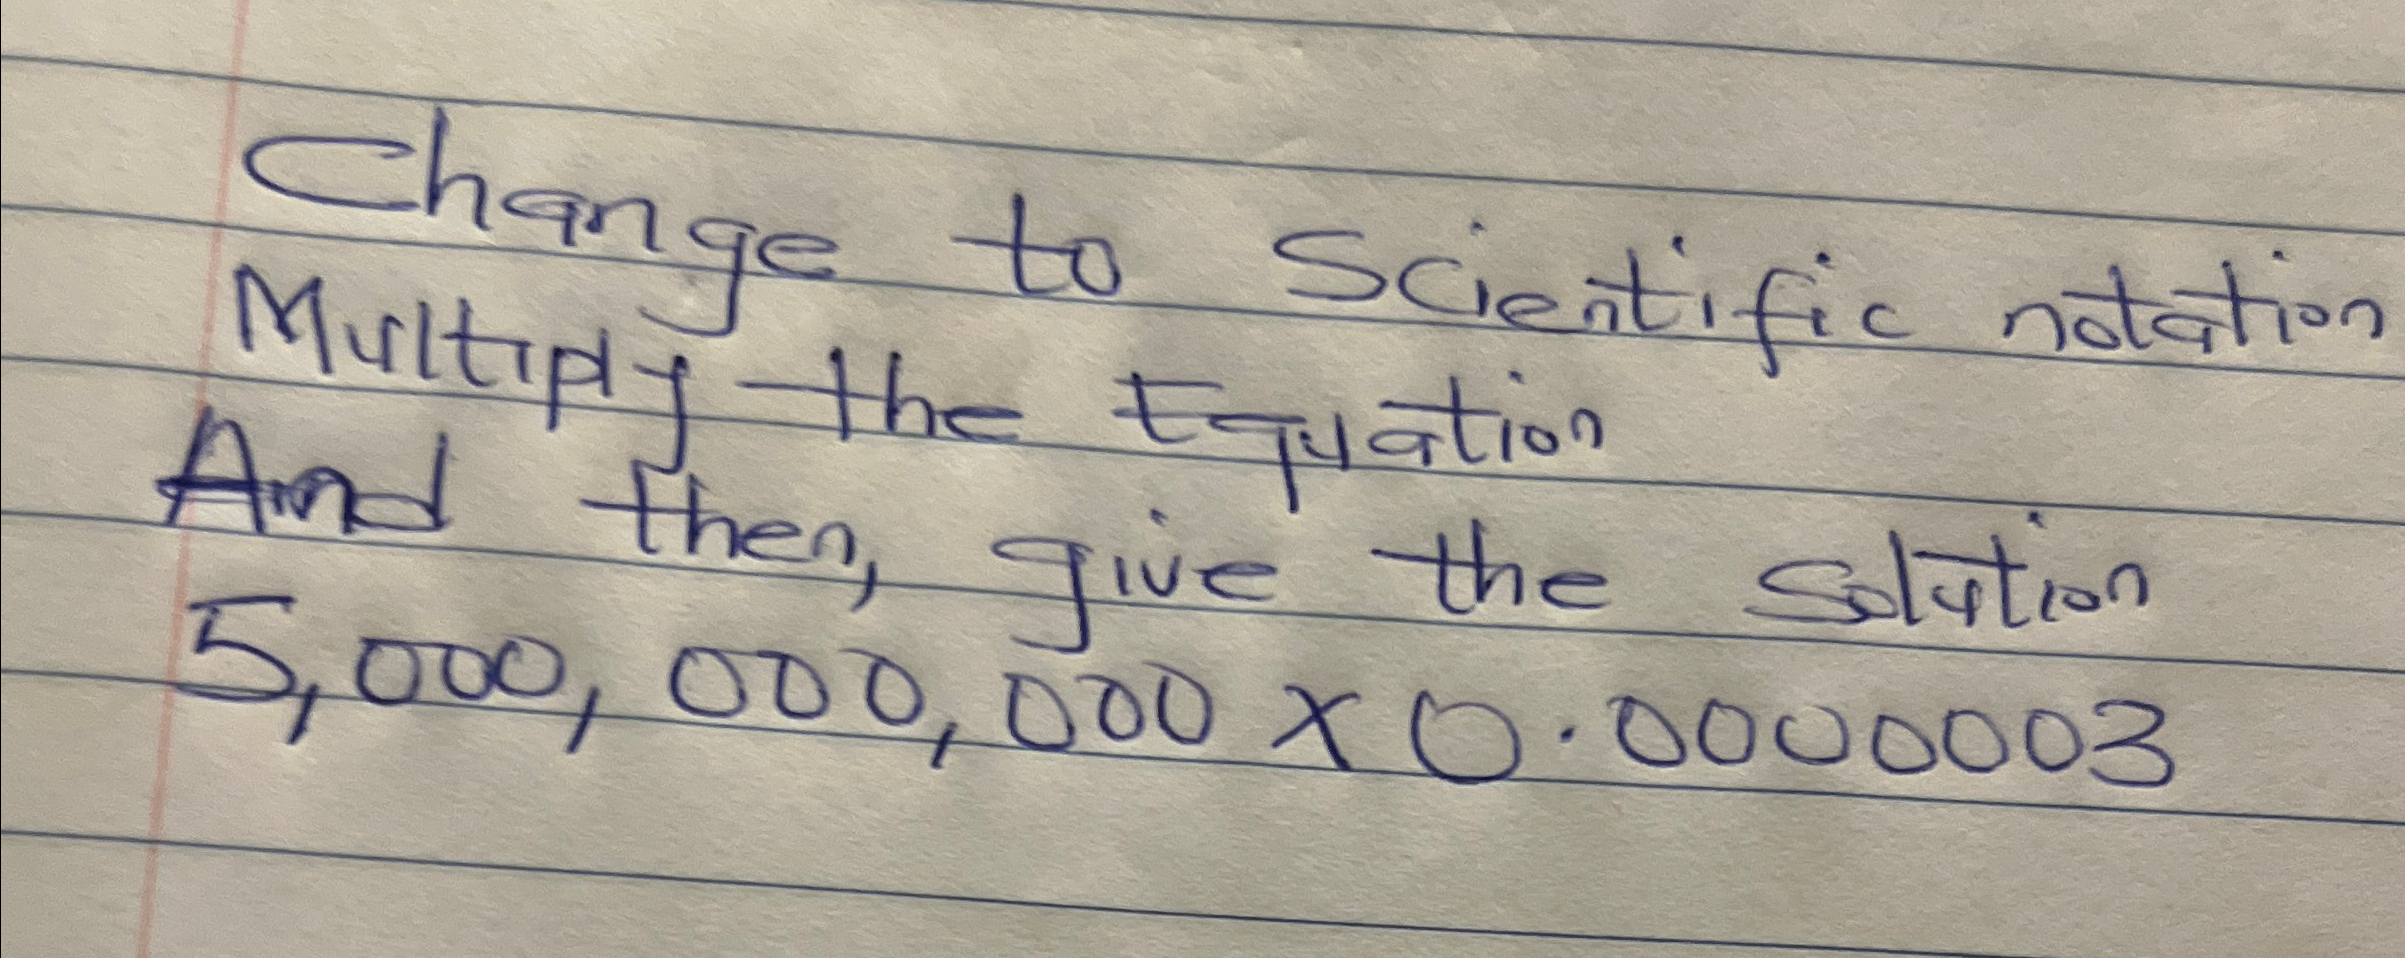 Change to Scientific notation
Multiply the Equation
And then, give the Solution
5,000,000,000 x 0.0000003